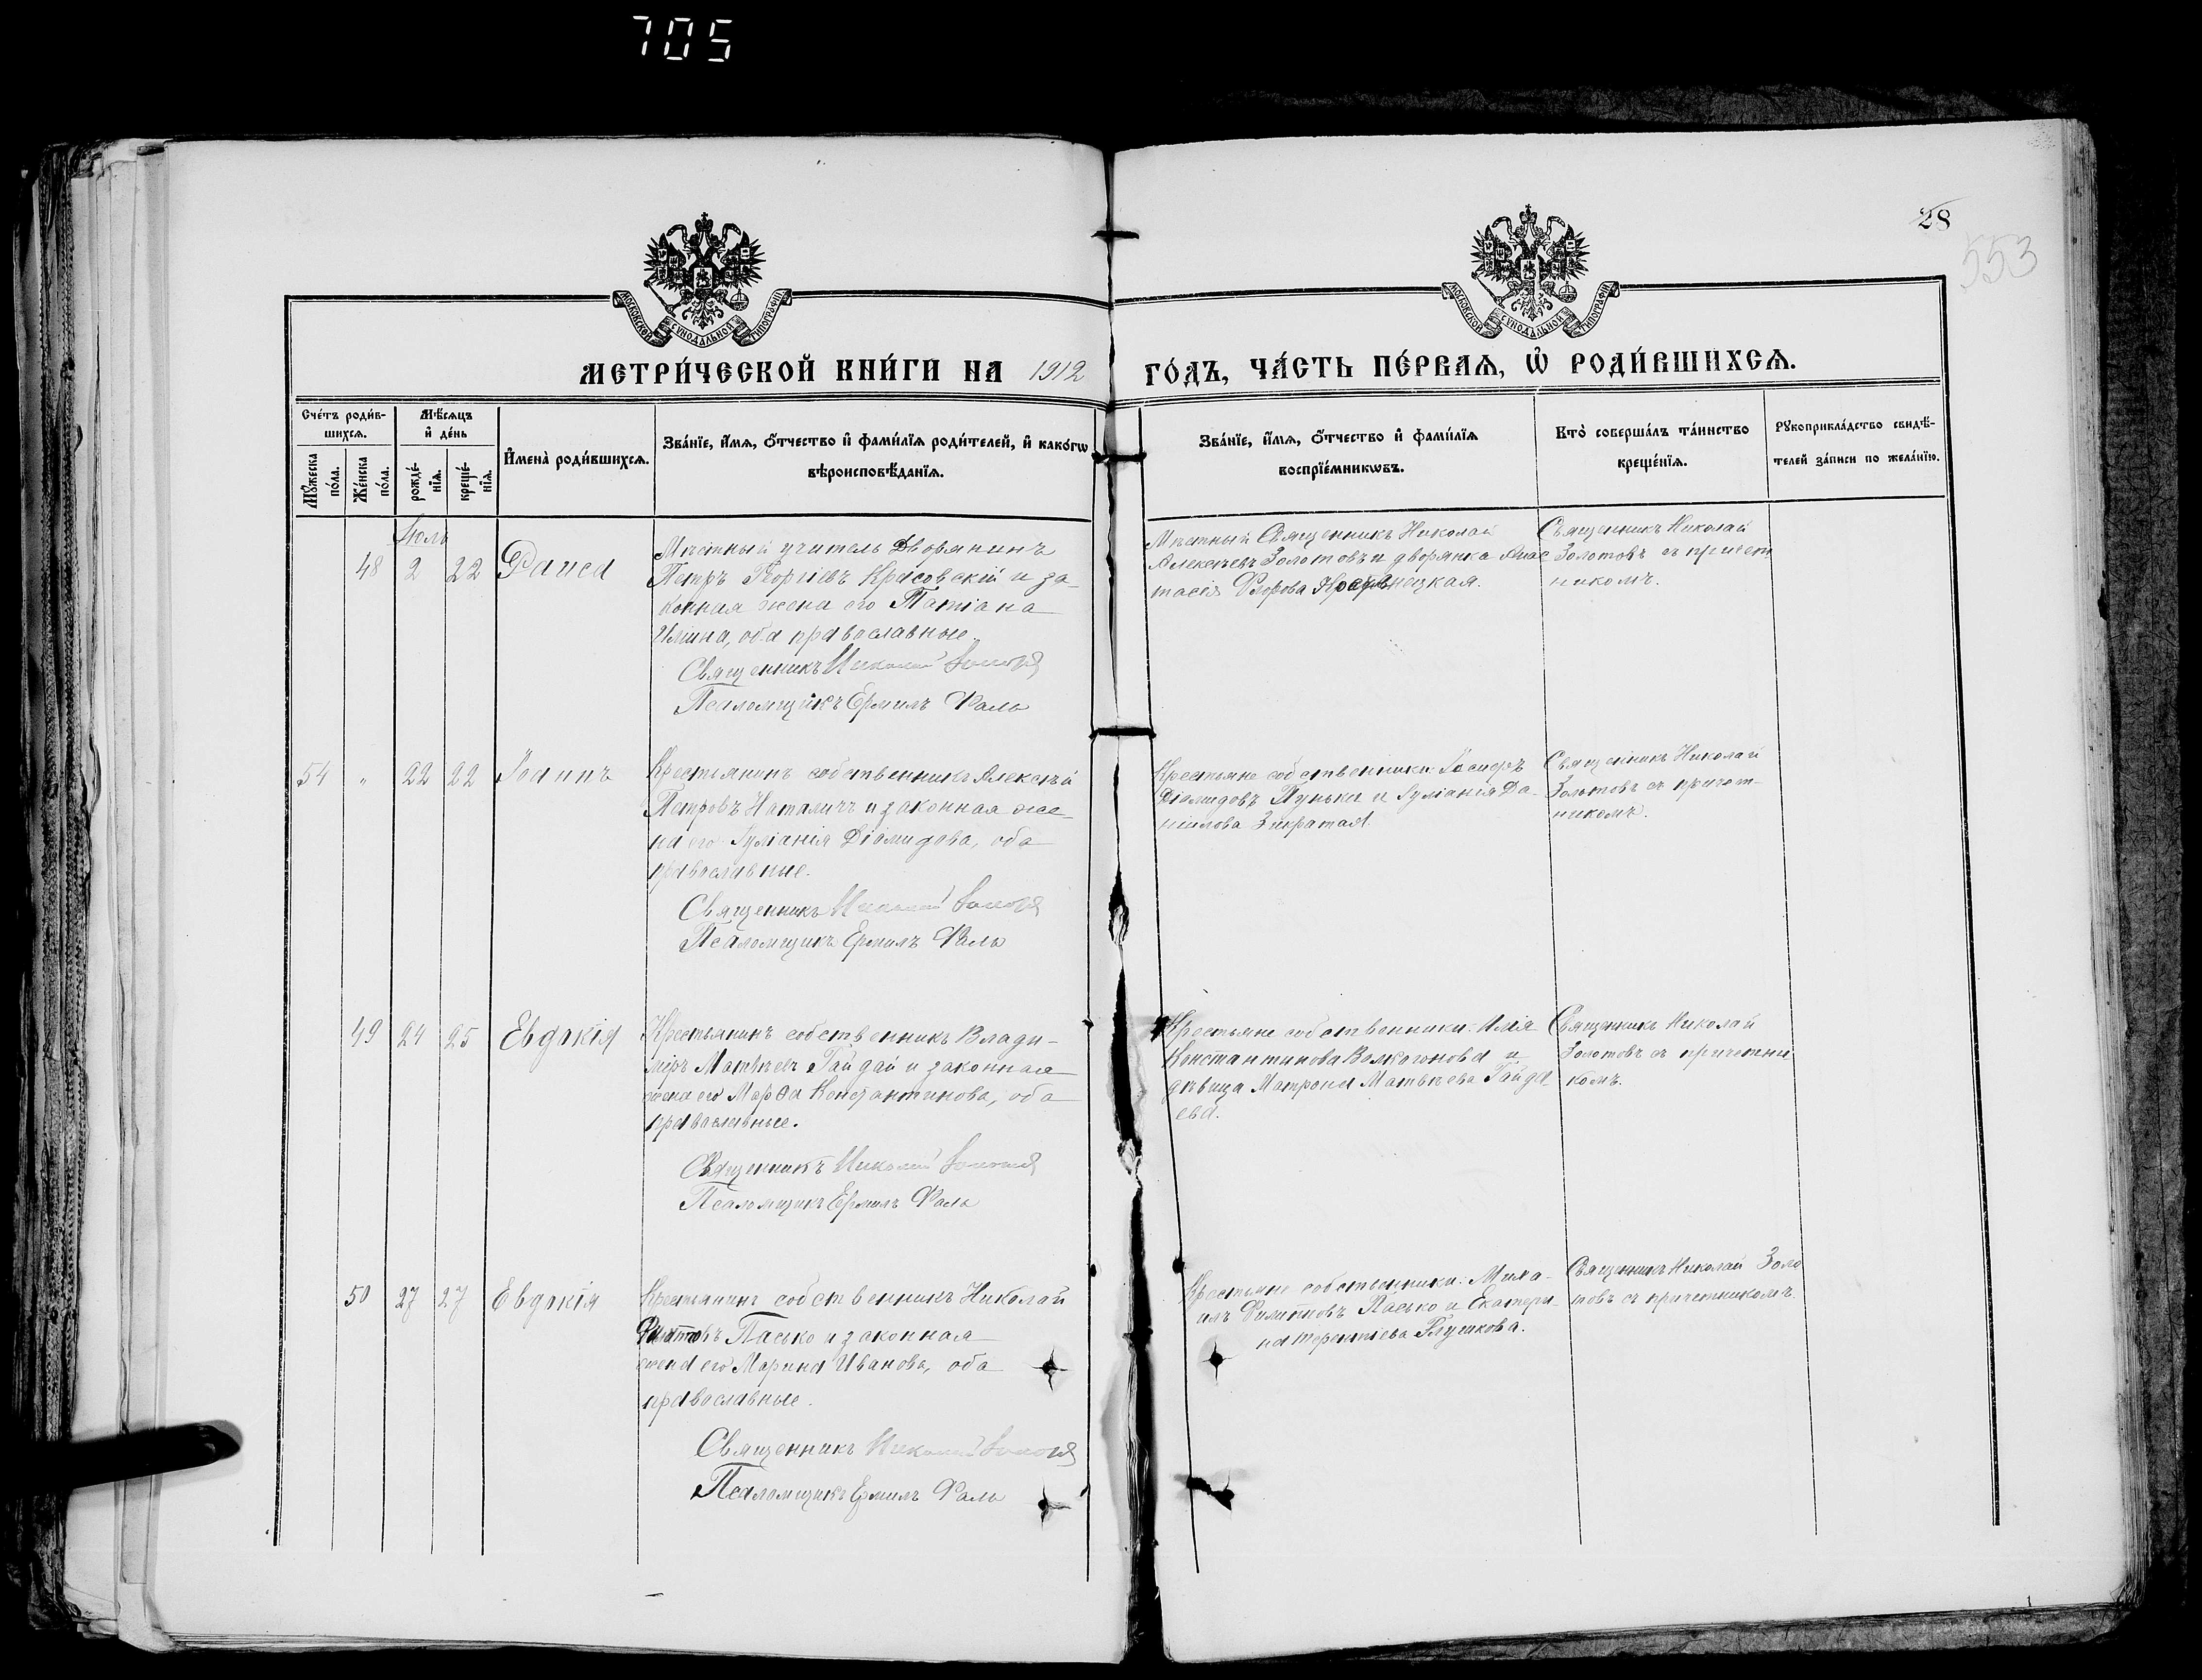 705
28
553
МОСКОВСКОЙ СѴНОДАЛЬНОЙ ТИПОГРАФІИ
МОСКОВСКОЙ СѴНОДАЛЬНОЙ ТИПОГРАФІИ
МЕТРИ́ЧЕСКОЙ КНИ́ГИ НА 1912 ГО́ДЪ, ЧА́СТЬ ПЕ́РВАѦ, Ѡ҆ РОДИ́ВШИХСѦ.
Сче́тъ роди́в-
шихсѧ.
Мꙋ́жеска
по́ла.
Же́нска
по́ла.
Мѣ́сѧцъ
и҆ де́нь
рожде́-
нїѧ.
креще́-
нїѧ.
И҆мена̀ роди́вшихсѧ.
Зва́нїе, и҆́мѧ, ѻ҆́тчество и҆ фами́лїѧ роди́телей, и҆ како́гѡ
вѣроисповѣ́данїѧ.
Зва́нїе, и҆́мѧ, ѻ҆́тчество и҆ фами́лїѧ
воспрїе́мникѡвъ.
Кто̀ соверша́лъ та́инство
креще́нїѧ.
Рꙋкоприкла́дство свидѣ́-
телей за́писи по жела́нїю.
Іюль
48 2 22 Раиса
Мѣстный учитель Дворянинъ
Петръ Георгіевъ Красовскій и за-
конная жена его Татіана
Иліина, оба православные.
Священникъ Николай Золотовъ
Псаломщикъ Ермилъ Фаль
Мѣстный Священникъ Николай
Алексѣевъ Золотовъ и дворянка Анас
тасія
Священникъ Николай
Золотовъ съ причет
никомъ.
54 " 22 22 Іоаннъ
Крестьянинъ собственникъ Алексѣй
Петровъ Наталичъ и законная же-
на его Іуліанія Діомидова, оба
православные.
Священникъ Николай Золотовъ
Псаломщикъ Ермилъ Фаль
Крестьяне собственники: Іосифъ
Діомидовъ Пунька и Іуліанія Да-
ніилова Зикратая.
Священникъ Николай
Золотовъ съ причет-
никомъ.
49 24 25 Евдокія
Крестьянинъ собственникъ Влади-
міръ Матвѣевъ Гайдай и законная
жена его Марѳа Константинова, оба
православные.
Священникъ Николай Золотовъ
Псаломщикъ Ермилъ Фаль
Крестьяне собственники: Илія
Константинова Волкогонова и
дѣвица Матрона Матвѣева Гайда
ева.
Священникъ Николай
Золотовъ съ причетни
комъ.
50 27 27 Евдокія
Крестьянинъ собственникъ Николай
Пасько и законная
жена его Марина Иванова, оба
православные.
Священникъ Николай Золотовъ
Псаломщикъ Ермилъ Фаль
Крестьяне собственники: Миха-
илъ Филиповъ Пасько и Екатери-
на Терентіева Глушкова.
Священникъ Николай Золо
товъ съ причетникомъ.